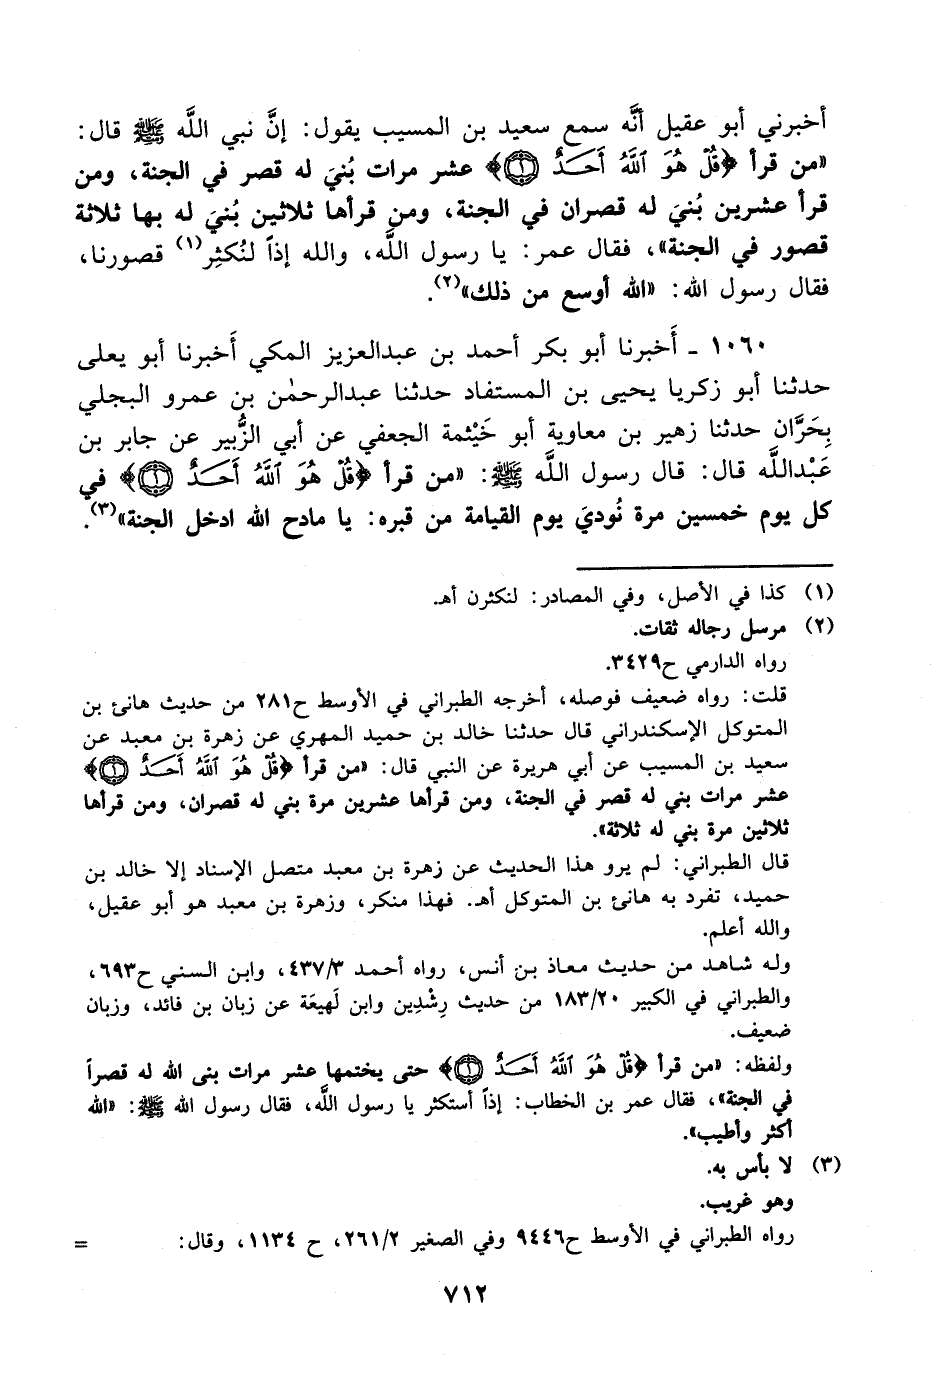 أخبرني أبو عقيل أنَّه سمع سعيد بن المسيب يقول: إنَّ نبي اللَّه ﷺ قال:
«من قرأ ﴿قُلْ هُوَ ٱللَّهُ أَحَدٌ ۝١﴾ عشر مرات بُنيَ له قصر في الجنة، ومن
قرأ عشرين بُنيَ له قصران في الجنة، ومن قرأها ثلاثين بُنيَ له بها ثلاثة
قصور في الجنة»، فقال عمر: يا رسول اللَّه، والله إذاً لنُكثِر(١) قصورنا،
فقال رسول الله: «الله أوسع من ذلك»(٢).
١٠٦٠ ـ أَخبرنا أبو بكر أحمد بن عبدالعزيز المكي أَخبرنا أبو يعلى
حدثنا أبو زكريا يحيى بن المستفاد حدثنا عبدالرحمٰن بن عمرو البجلي
بِحَرَّان حدثنا زهير بن معاوية أبو خَيْثمة الجعفي عن أبي الزُّبير عن جابر بن
عَبْداللَّه قال: قال رسول اللَّه ﷺ: «من قرأ ﴿قُلْ هُوَ ٱللَّهُ أَحَدٌ ۝١﴾ في
كل يوم خمسين مرة نُوديَ يوم القيامة من قبره: يا مادح الله ادخل الجنة»(٣).
(١) كذا في الأصل، وفي المصادر: لنكثرن أهـ.
(٢) مرسل رجاله ثقات.
رواه الدارمي ح٣٤٢٩.
قلت: رواه ضعيف فوصله، أخرجه الطبراني في الأوسط ح٢٨١ من حديث هانئ بن
المتوكل الإسكندراني قال حدثنا خالد بن حميد المهري عن زهرة بن معبد عن
سعيد بن المسيب عن أبي هريرة عن النبي قال: «من قرأ ﴿قُلْ هُوَ ٱللَّهُ أَحَدٌ ۝١﴾
عشر مرات بني له قصر في الجنة، ومن قرأها عشرين مرة بني له قصران، ومن قرأها
ثلاثين مرة بني له ثلاثة».
قال الطبراني: لم يرو هذا الحديث عن زهرة بن معبد متصل الإسناد إلا خالد بن
حميد، تفرد به هانئ بن المتوكل أهـ. فهذا منكر، وزهرة بن معبد هو أبو عقيل،
والله أعلم.
وله شاهد من حديث معاذ بن أنس، رواه أحمد ٤٣٧/٣، وابن السني ح٦٩٣،
والطبراني في الكبير ١٨٣/٢٠ من حديث رِشْدِين وابن لَهيعَة عن زبان بن فائد، وزبان
ضعيف.
ولفظه: «من قرأ ﴿قُلْ هُوَ ٱللَّهُ أَحَدٌ ۝١﴾ حتى يختمها عشر مرات بنى الله له قصراً
في الجنة»، فقال عمر بن الخطاب: إذاً أستكثر يا رسول اللَّه، فقال رسول الله ﷺ: «الله
أكثر وأطيب».
(٣) لا بأس به.
وهو غريب.
رواه الطبراني في الأوسط ح٩٤٤٦ وفي الصغير ٢٦١/٢، ح ١١٣٤، وقال: =
٧١٢